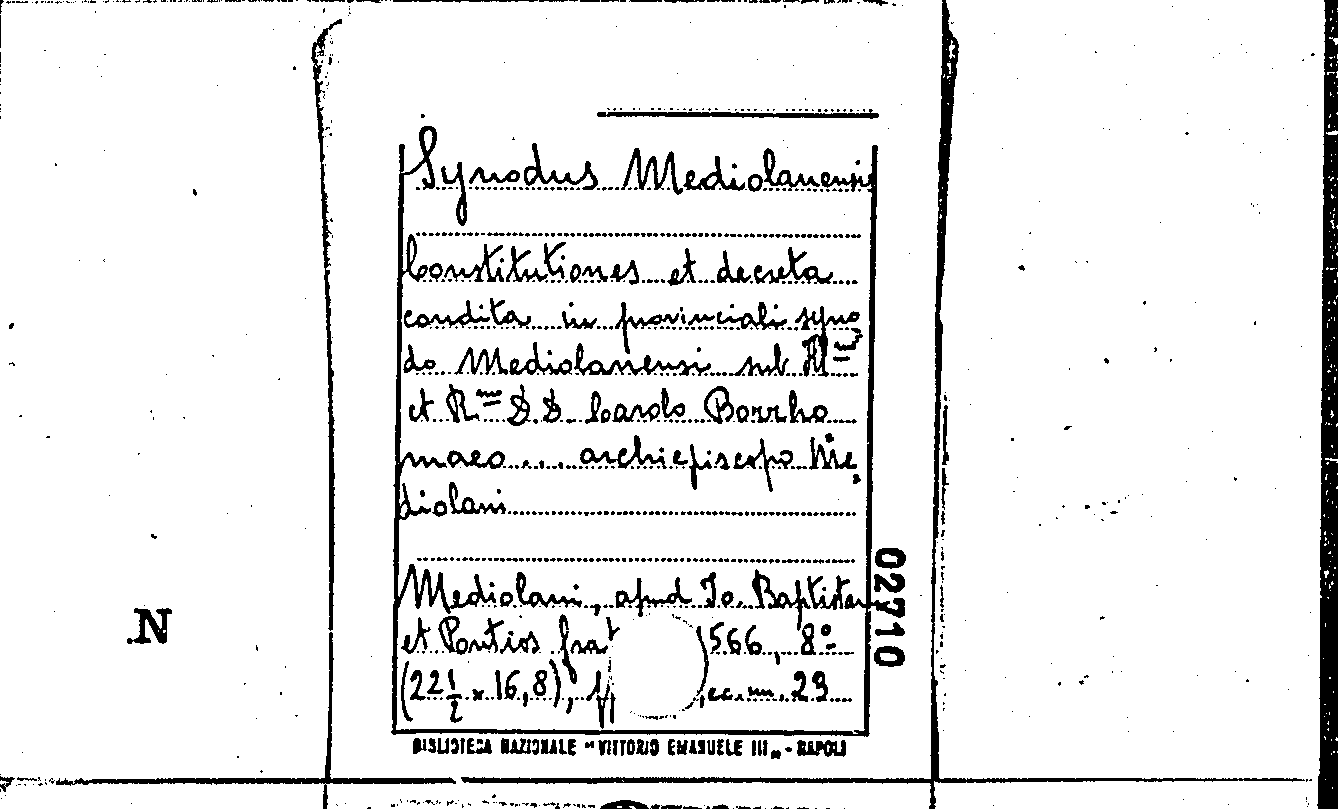 Synodus Mediolanensis
Constitutiones et decreta
condita in provinciali syno
do Mediolanensi sub Ill.mo
et R.mo D. D. Carolo Borrho
maeo ... archiepiscopo Me,
diolani
Mediolani, apud Io. Baptistam
et Pontios frat 1566, 8º
(22½ × 16,8), ,cc. nn. 29
BIBLIOTECA NAZIONALE "VITTORIO EMANUELE III„ - NAPOLI
02710
N